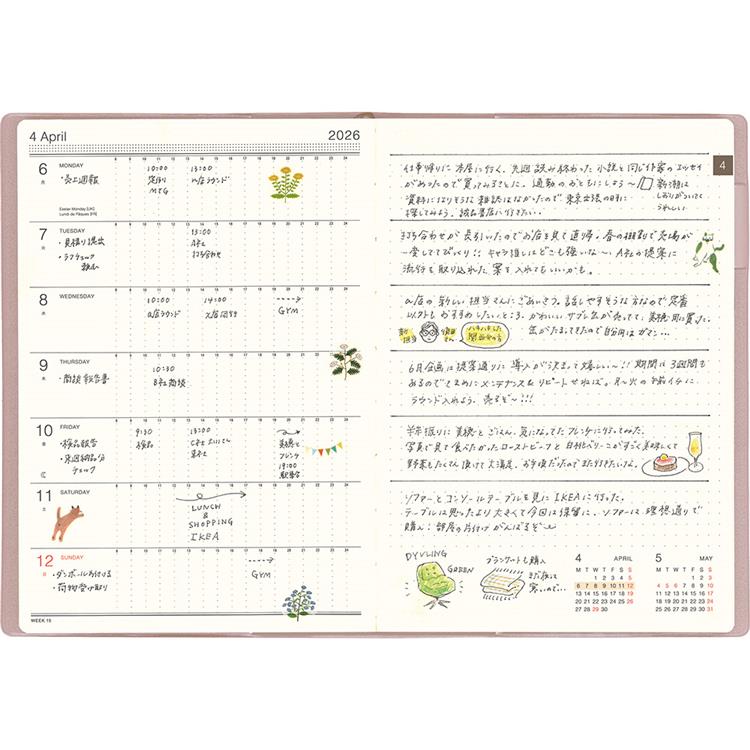 4 April 2026
6 MONDAY
月
・売上週報
10:00 定例 MTG
13:00 a店ラウンド
Easter Monday [UK]
Lundi de Pâques [FR]
7 TUESDAY
火
・見積り提出
・ラフチェック
13:00 A社 打ち合わせ
8 WEDNESDAY
水
10:00 a店ラウンド
14:00 x店
GYM
9 THURSDAY
木
・商談報告書
10:30 B社商談
10 FRIDAY
金
・検品報告
・来週納品分
チェック
9:30 検品
13:00 C社
美穂と
フレンチ
19:00
11 SATURDAY
土
LUNCH
&
SHOPPING
IKEA
12 SUNDAY
日
・ダンボール片付ける
・荷物受け取り
GYM
WEEK 15
4
仕事帰りに本屋に行く。先週読み終わった小説と同じ作家のエッセイ
があったので買ってみることに。通勤のおともにしよう〜
新潮は
しおりがついてて
うれしい
資料になりそうな雑誌はなかったので東京出張の時に
探してみよう。
打ち合わせが長引いたのでお店を見て直帰。春の棚割で売場が
一変しててびっくり!! キャラ推しはどこも強いな〜。A社の提案に
流行を取り入れた案を入れてもいいかも。
a店の新しい担当さんにごあいさつ。話しやすそうな方なので定番
以外もおすすめしたいところ。かわいいサブレ缶が売ってて、美穂用に買った。
缶がたまってきたので自分用はガマン…
新担当
ハキハキした
関西の方
6月企画は提案通りに導入が決まって嬉しい〜!! 期間は3週間も
あるのでこまめにメンテナンス&リピートせねば。月〜火の午前イチに
ラウンド入れよう。売るぞ〜!!!
半年振りに美穂とごはん。気になってたフレンチに行ってみた。
写真で見て食べたかったローストビーフと自社ベリーこがすごく美味しくて
野菜もたくさん頂けて大満足。お手頃だったのでまた行きたいな。
ソファーとコンソールテーブルを見にIKEAに行った。
テーブルは思ったより大きくて今回は保留に。ソファーは理想通りで
購入! 部屋の片付けがんばるぞ〜
DYVLING
GREEN
ブランケットも購入
まだ夜は
寒いので…
4 APRIL
M T W T F S S
1 2 3 4 5
6 7 8 9 10 11 12
13 14 15 16 17 18 19
20 21 22 23 24 25 26
27 28 29 30
5 MAY
M T W T F S S
1 2 3
4 5 6 7 8 9 10
11 12 13 14 15 16 17
18 19 20 21 22 23 24
25 26 27 28 29 30 31